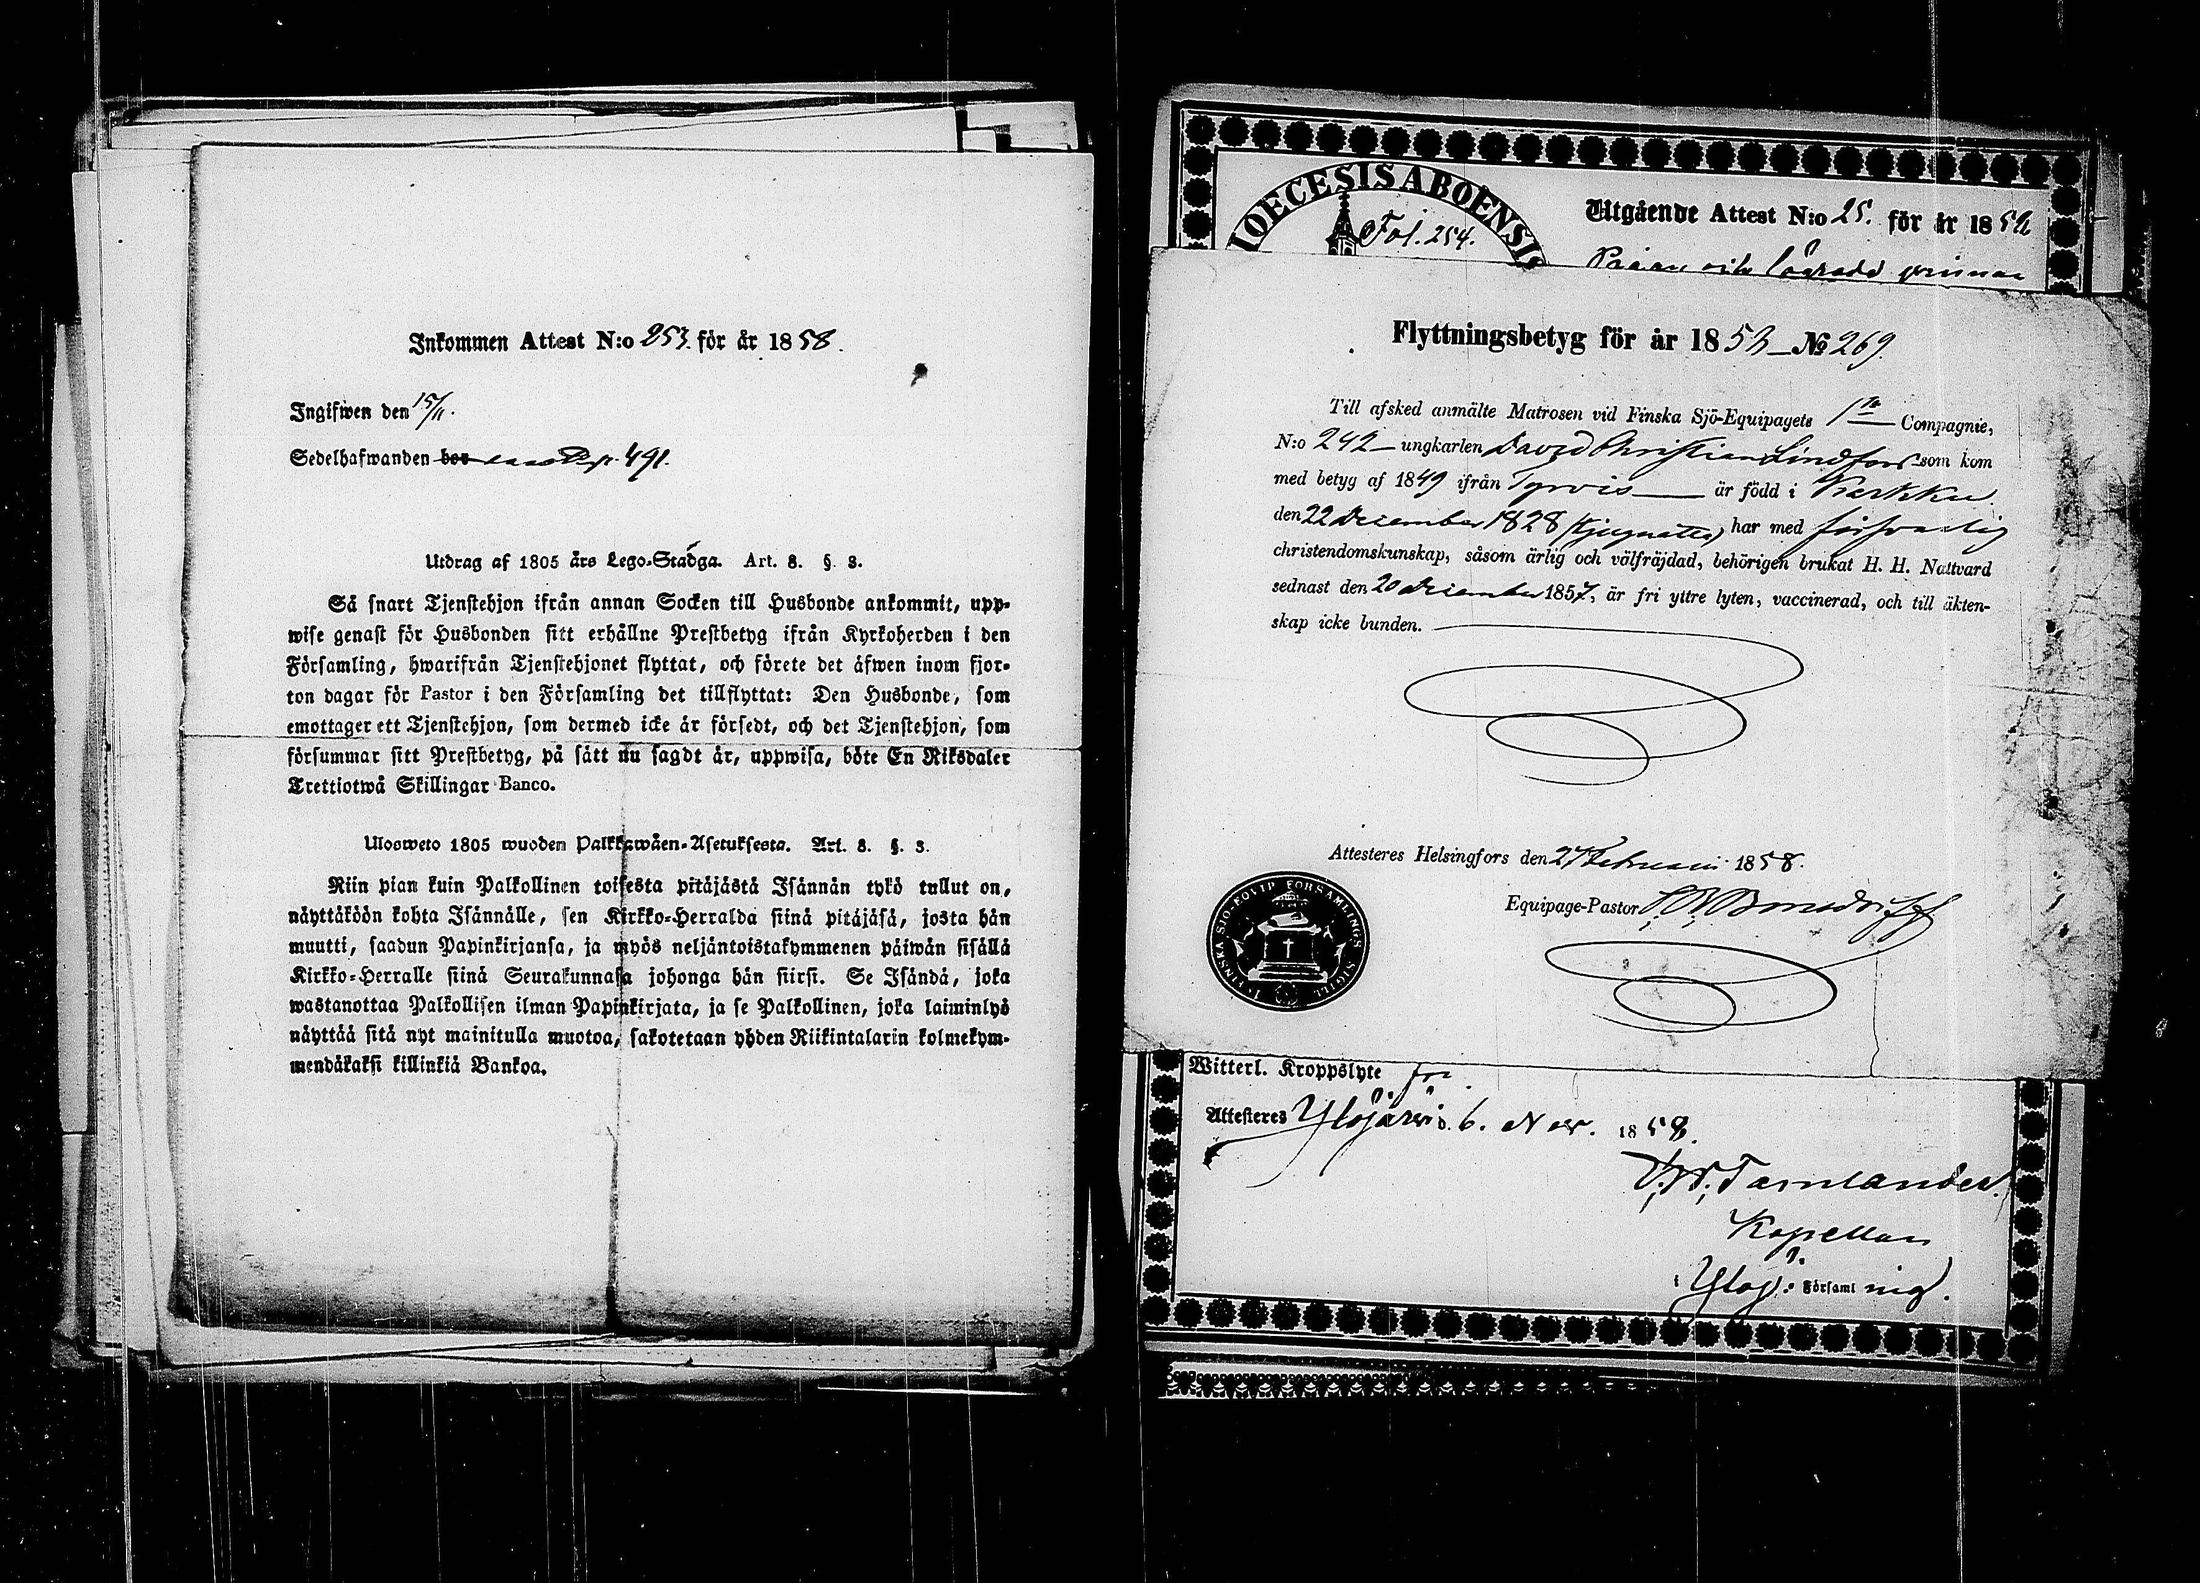 Inkommen Attest N:o 253. för år 1858.
Ingifwen den 15/11.
Sedelhafwanden bor 491.
Utdrag af 1805 års Lego-Stadga. Art. 8. §. 3.
Så snart Tjenstehjon ifrån annan Socken till Husbonde ankommit, upp-
wise genast för Husbonden sitt erhållne Prestbetyg ifrån Kyrkoherden i den
Församling, hwarifrån Tjenstehjonet flyttat, och förete det äfwen inom fjor-
ton dagar för Pastor i den Församling det tillflyttat: Den Husbonde, som
emottager ett Tjenstehjon, som dermed icke är försedt, och det Tjenstehjon, som
försummar sitt Prestbetyg, på sätt nu sagdt är, uppwisa, böte En Riksdaler
Trettiotwå Skillingar Banco.
Ulosweto 1805 wuoden Palkkawäen-Asetuksesta. Art. 8. §. 3.
Niin pian kuin Palkollinen toisesta pitäjästä Isännän tykö tullut on,
näyttäköön kohta Isännälle, sen Kirkko-Herralda siinä pitäjäsä, josta hän
muutti, saadun Papinkirjansa, ja myös neljäntoistakymmenen päiwän sisällä
Kirkko-Herralle siinä Seurakunnasa johonga hän siirsi. Se Isändä, joka
wastanottaa Palkollisen ilman Papinkirjata, ja se Palkollinen, joka laiminlyö
näyttää sitä nyt mainitulla muotoa, sakotetaan yhden Riikintalarin kolmekym-
mendäkaksi killinkiä Bankoa.
DIOECESIS ABOENSIS
Fol. 254.
Utgående Attest N:o 25. för år 1858
Flyttningsbetyg för år 1858 — № 269.
Till afsked anmälte Matrosen vid Finska Sjö-Equipagets 1ta Compagnie,
N:o 242 — ungkarlen David Christian Lindfors som kom
med betyg af 1849 ifrån Tyrvis — är född i Karkku
den 22 December 1828 har med försvarlig
christendomskunskap, såsom ärlig och välfräjdad, behörigen brukat H. H. Nattvard
sednast den 20 December 1857, är fri yttre lyten, vaccinerad, och till äkten-
skap icke bunden.
Attesteres Helsingfors den 27 Februari 1858.
Equipage-Pastor
FINSKA SJÖ-EQVIP FÖRSAMLINGS SIGILL
Witterl. Kroppslyte fri.
Attesteres Ylöjärvi d. 6. Nov. 1858.
Kapellan
i Ylöj: Församl ing.